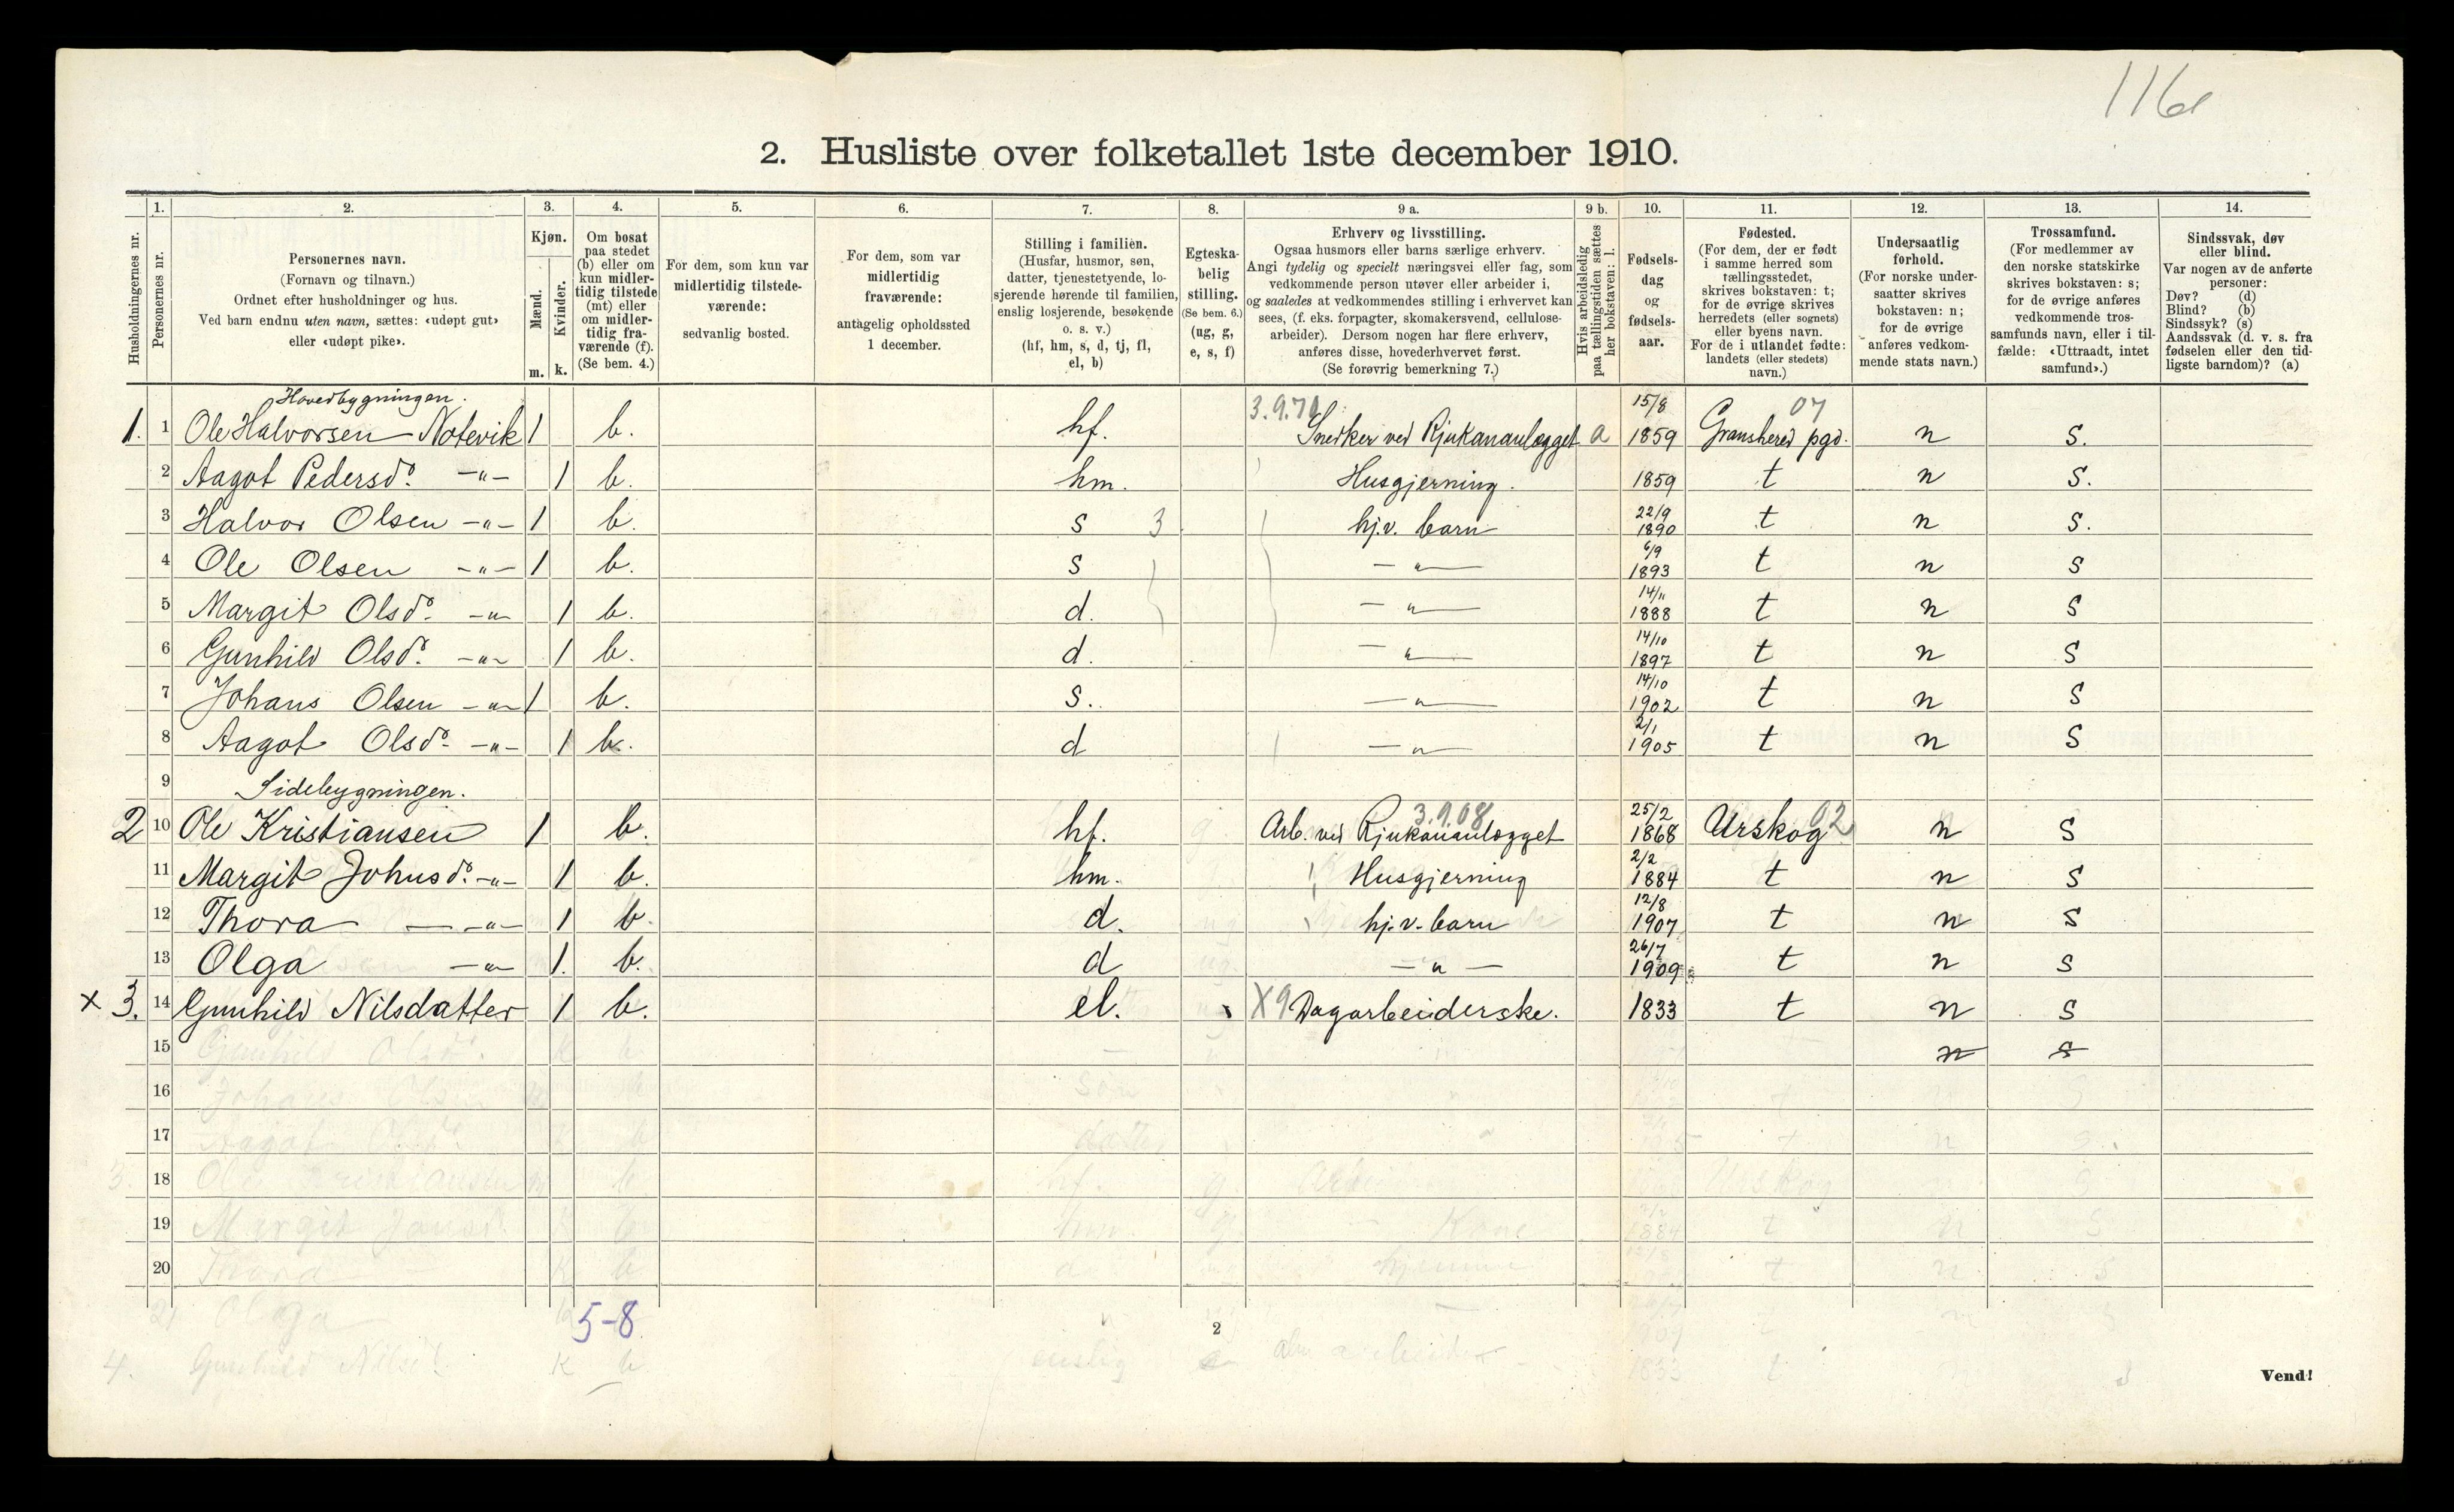 116
2. Husliste over folketallet 1ste december 1910.
1. 2. 3. 4. 5. 6. 7. 8. 9 a. 9 b. 10. 11. 12. 13. 14.
Husholdningernes nr.
Personernes nr.
Personernes navn.
(Fornavn og tilnavn.)
Ordnet efter husholdninger og hus.
Ved barn endnu uten navn, sættes: «udøpt gut»
eller «udøpt pike».
Kjøn.
Mænd.
Kvinder.
m. k.
Om bosat
paa stedet
(b) eller om
kun midler-
tidig tilstede
(mt) eller
om midler-
tidig fra-
værende (f).
(Se bem. 4.)
For dem, som kun var
midlertidig tilstede-
værende:
sedvanlig bosted.
For dem, som var
midlertidig
fraværende:
antagelig opholdssted
1 december.
Stilling i familien.
(Husfar, husmor, søn,
datter, tjenestetyende, lo-
sjerende hørende til familien,
enslig losjerende, besøkende
o. s. v.)
(hf, hm, s, d, tj, fl,
el, b)
Egteska-
belig
stilling.
(Se bem. 6.)
(ug, g,
e, s, f)
Erhverv og livsstilling.
Ogsaa husmors eller barns særlige erhverv.
Angi tydelig og specielt næringsvei eller fag, som
vedkommende person utøver eller arbeider i,
og saaledes at vedkommendes stilling i erhvervet kan
sees, (f. eks. forpagter, skomakersvend, cellulose-
arbeider). Dersom nogen har flere erhverv,
anføres disse, hovederhvervet først.
(Se forøvrig bemerkning 7.)
Hvis arbeidsledig
paa tællingstiden sættes
her bokstaven: l.
Fødsels-
dag
og
fødsels-
aar.
Fødested.
(For dem, der er født
i samme herred som
tællingsstedet,
skrives bokstaven: t;
for de øvrige skrives
herredets (eller sognets)
eller byens navn.
For de i utlandet fødte:
landets (eller stedets)
navn.)
Undersaatlig
forhold.
(For norske under-
saatter skrives
bokstaven: n;
for de øvrige
anføres vedkom-
mende stats navn.)
Trossamfund.
(For medlemmer av
den norske statskirke
skrives bokstaven: s;
for de øvrige anføres
vedkommende tros-
samfunds navn, eller i til-
fælde: «Uttraadt, intet
samfund».)
Sindssvak, døv
eller blind.
Var nogen av de anførte
personer:
Døv? (d)
Blind? (b)
Sindssyk? (s)
Aandssvak (d. v. s. fra
fødselen eller den tid-
ligste barndom)? (a)
Hovedbygningen.
3.9.70 15/8 07
1. 1 Ole Halvorsen Notevik 1 b. hf. Snedker ved Rjukananlægget a 1859 Gransherred pgd. n s.
2 Aagot Pedersd. -„- 1 b. hm. Husgjerning. 1859 t n s.
3 Halvor Olsen -„- 1 b. s 3 hj.v. barn 22/9 1890 t n s.
4 Ole Olsen -„- 1 b. s -„- 6/9 1893 t n s
5 Margit Olsd. -„- 1 b. d. -„- 14/11 1888 t n s
6 Gunhild Olsd. -„- 1 b. d. -„- 14/10 1897 t n s
7 Johans Olsen -„- 1 b. s. -„- 14/10 1902 t n s
8 Aagot Olsd. -„- 1 b. d -„- 2/1 1905 t n s
9 Sidebygningen.
3.9.08 02
2 10 Ole Kristiansen 1 b. hf. Arb. ved Rjukananlægget 25/2 1868 Urskog n s
11 Margit Johnsd. -„- 1 b. hm. Husgjerning 2/2 1884 t n s
12 Thora -„- 1 b. d. hj.v. barn 12/8 1907 t n s
13 Olga -„- 1. b. d -„- 26/7 1909 t n s
x 3. 14 Gunhild Nilsdatter 1 b. el. X9 Dagarbeiderske. 1833 t n s
15 n s
16
17
18
19
20
5-8
2
Vend!